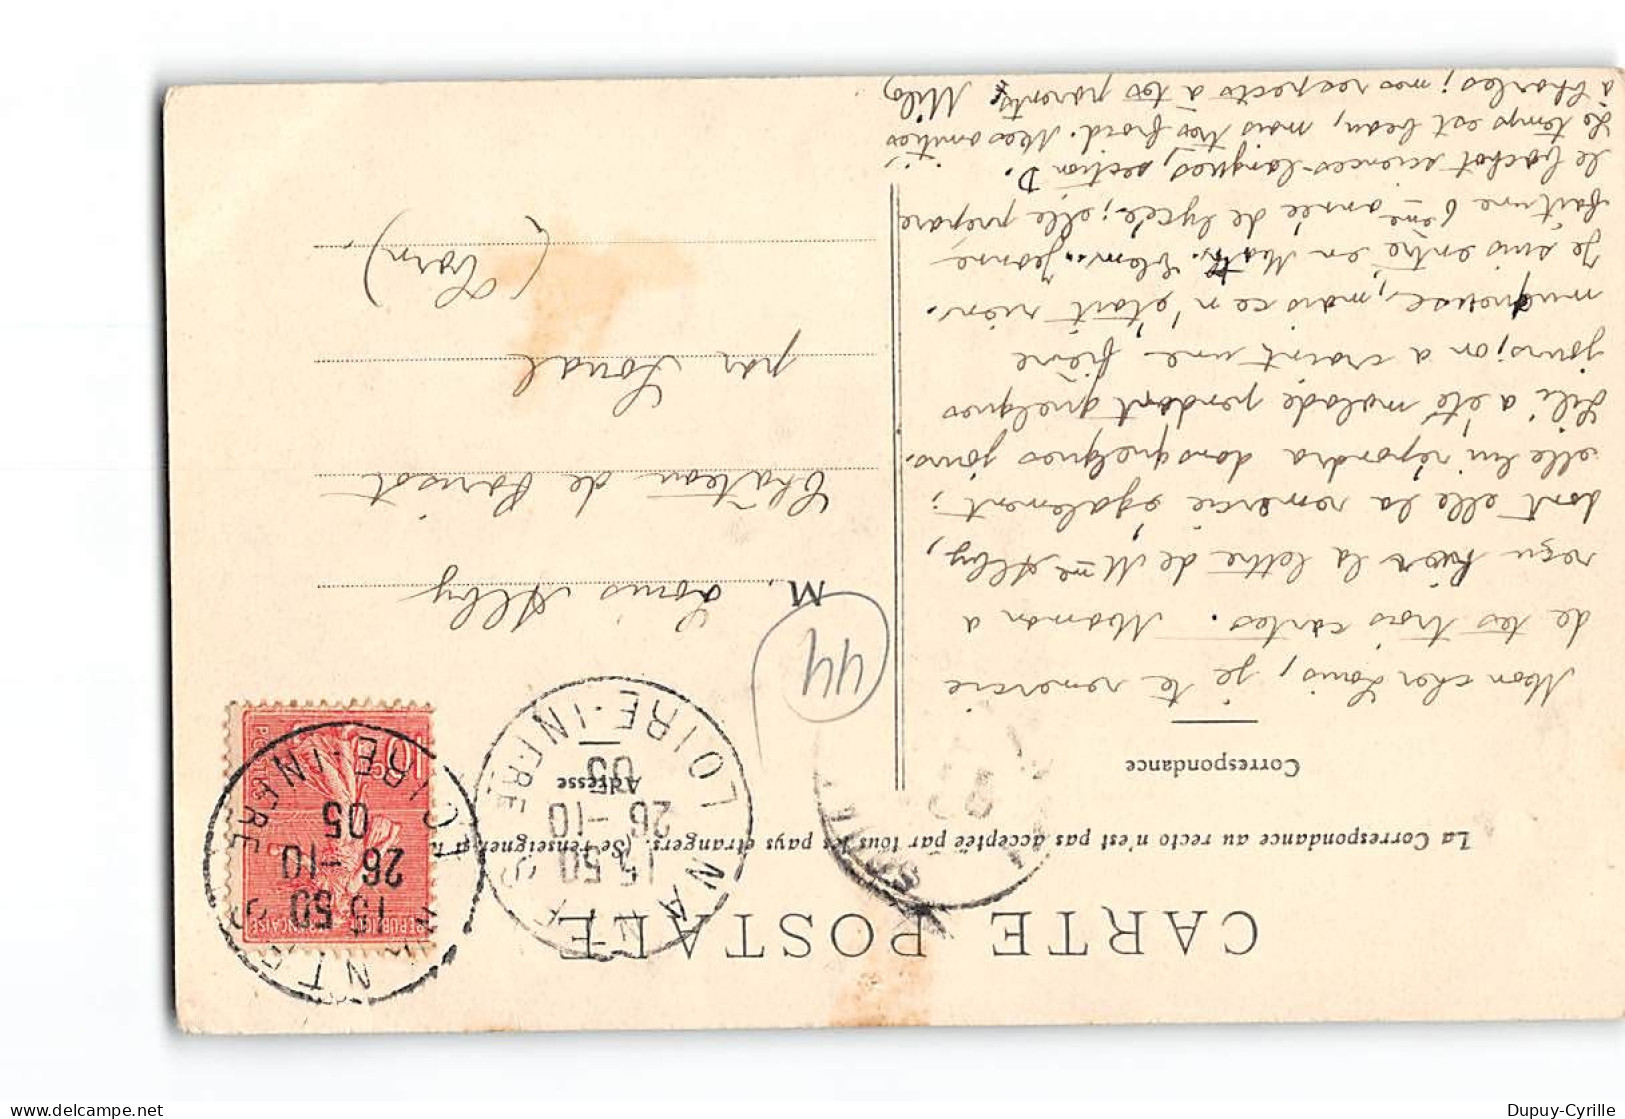 CARTE POSTALE
La Correspondance au recto n'est pas acceptée par tous les pays étrangers. (Se renseigner à la
Correspondance
Adresse
Mon cher Louis, je te remercie
de tes trois cartes. Maman a
reçu hier la lettre de Mme Alby,
dont elle la remercie également;
elle lui répondra dans quelques jours.
Lili a été malade pendant quelques
jours; on a craint une fièvre
muqueuse, mais ce n'était rien.
Je suis entré en Math. Elem. Jeanne
fait une 6ème année de lycée; elle prépare
le bachot sciences-langues, section D.
Le temps est beau, mais très froid. Mes amitiés
à Charles; mes respects à tes parents. Milo
M. Louis Alby
Château de Parisot
par
(Tarn)
44
NANTES
LOIRE-INFRE
15 50
26-10
05
NANTES
LOIRE-INFRE
15 50
26-10
05
REPUBLIQUE FRANÇAISE
10c
Dupuy-Cyrille